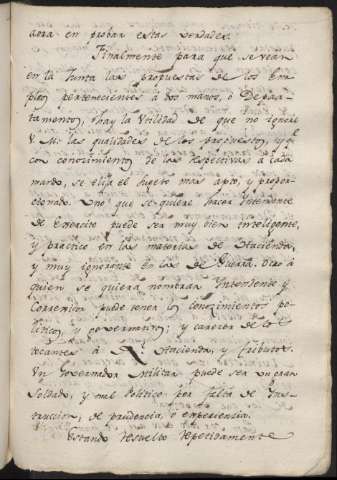 aora en probar estas verdades.
Finalmente para que se vean
en la Junta las propuestas de los Em-
pleos pertenecientes à dos manos, ò Depar-
tamentos, hay la Utilidad de que no ignore
V. M. las qualidades de los propuestos, y q.e
con conocimiento de las respectivas à cada
mando, se elija el sugeto mas apto, y propor-
cionado. Uno que se quiere hacer Intendente
de Exercito puede ser muy bien Inteligente,
y practico en las materias de Hacienda,
y muy ignorante en las de Guerra. Otro à
quien se quiera nombrar Intendente y
Corregidor puede tener los conocimientos po-
liticos, y governativos; y carecer de los
tocantes à R.l Hacienda, y tributos.
Un Governador Militar puede ser un gran
Soldado, y mal Politico por falta de Ins-
truccion, de prudencia, ò experiencia.
Estando resuelto repetidamente